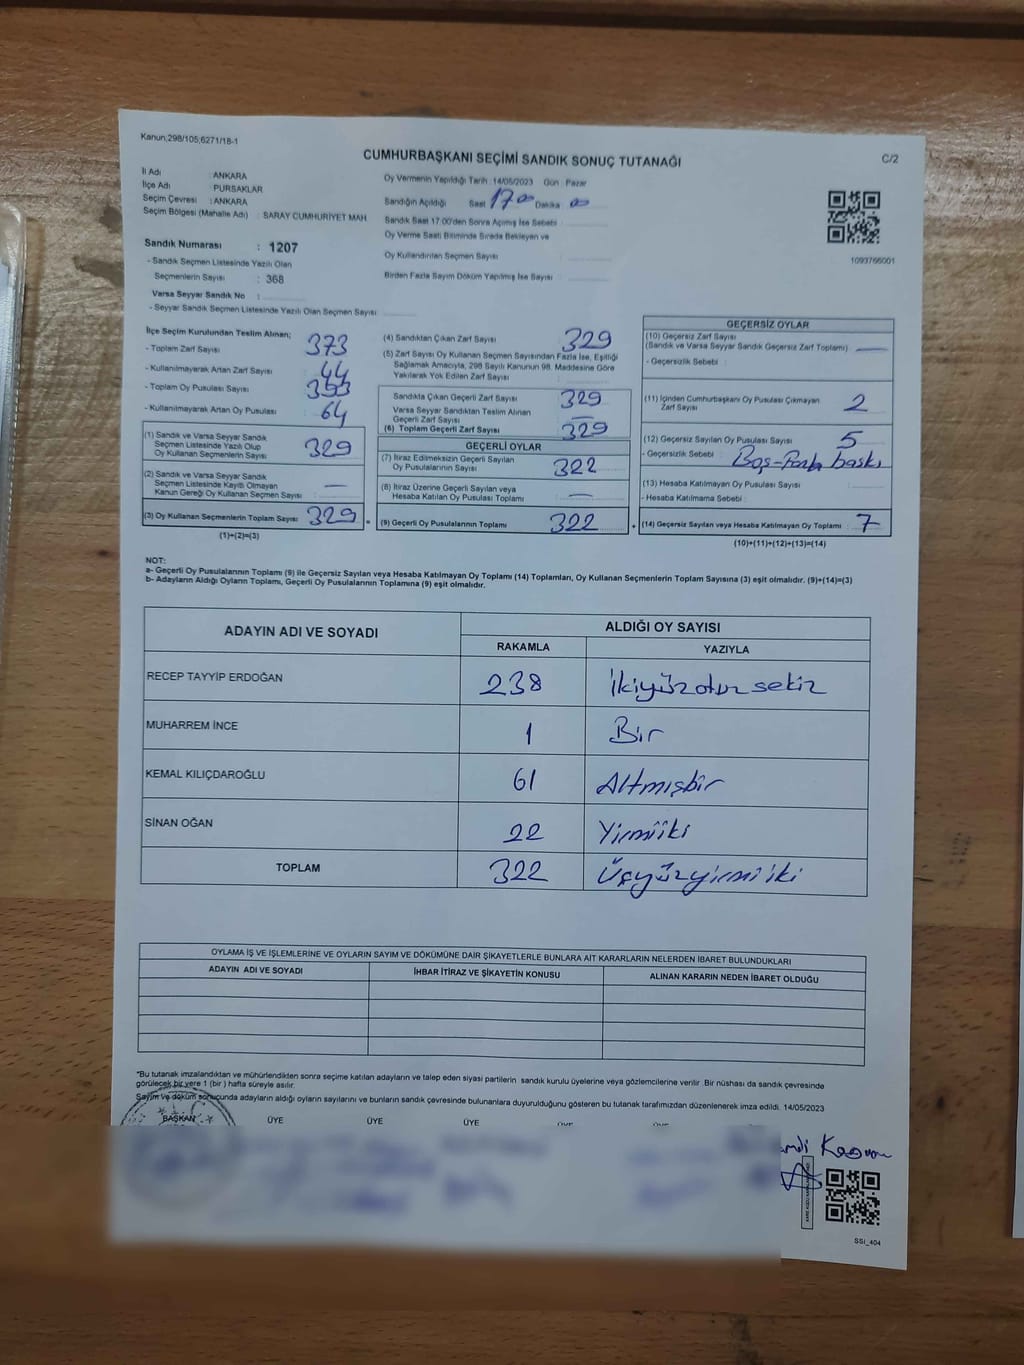 Kanun;298/105;6271/18-1
CUMHURBAŞKANI SEÇİMİ SANDIK SONUÇ TUTANAĞI
C/2
İl Adı : ANKARA
İlçe Adı : PURSAKLAR
Seçim Çevresi : ANKARA
Seçim Bölgesi (Mahalle Adı) : SARAY CUMHURİYET MAH
Sandık Numarası : 1207
- Sandık Seçmen Listesinde Yazılı Olan
Seçmenlerin Sayısı : 368
Varsa Seyyar Sandık No :
- Seyyar Sandık Seçmen Listesinde Yazılı Olan Seçmen Sayısı :
Oy Vermenin Yapıldığı Tarih : 14/05/2023 Gün : Pazar
Sandığın Açıldığı Saat 17 00 Dakika 00
Sandık Saat 17.00'den Sonra Açımış İse Sebebi :
Oy Verme Saati Bitiminde Sırada Bekleyen ve
Oy Kullandırılan Seçmen Sayısı :
Birden Fazla Sayım Döküm Yapılmış İse Sayısı :
1093766001
İlçe Seçim Kurulundan Teslim Alınan;
- Toplam Zarf Sayısı : 373
- Kullanılmayarak Artan Zarf Sayısı : 44
- Toplam Oy Pusulası Sayısı : 393
- Kullanılmayarak Artan Oy Pusulası : 64
(1) Sandık ve Varsa Seyyar Sandık
Seçmen Listesinde Yazılı Olup
Oy Kullanan Seçmenlerin Sayısı : 329
(2) Sandık ve Varsa Seyyar Sandık
Seçmen Listesinde Kayıtlı Olmayan
Kanun Gereği Oy Kullanan Seçmen Sayısı : —
(3) Oy Kullanan Seçmenlerin Toplam Sayısı : 329
(1)+(2)=(3)
(4) Sandıktan Çıkan Zarf Sayısı : 329
(5) Zarf Sayısı Oy Kullanan Seçmen Sayısından Fazla İse, Eşitliği
Sağlamak Amacıyla, 298 Sayılı Kanunun 98. Maddesine Göre
Yakılarak Yok Edilen Zarf Sayısı :
Sandıkta Çıkan Geçerli Zarf Sayısı : 329
Varsa Seyyar Sandıktan Teslim Alınan
Geçerli Zarf Sayısı : —
(6) Toplam Geçerli Zarf Sayısı : 329
GEÇERLİ OYLAR
(7) İtiraz Edilmeksizin Geçerli Sayılan
Oy Pusulalarının Sayısı : 322
(8) İtiraz Üzerine Geçerli Sayılan veya
Hesaba Katılan Oy Pusulası Toplamı : —
(9) Geçerli Oy Pusulalarının Toplamı : 322
GEÇERSİZ OYLAR
(10) Geçersiz Zarf Sayısı
(Sandık ve Varsa Seyyar Sandık Geçersiz Zarf Toplamı) : —
- Geçersizlik Sebebi :
(11) İçinden Cumhurbaşkanı Oy Pusulası Çıkmayan
Zarf Sayısı : 2
(12) Geçersiz Sayılan Oy Pusulası Sayısı : 5
- Geçersizlik Sebebi : Boş- baskı
(13) Hesaba Katılmayan Oy Pusulası Sayısı :
- Hesaba Katılmama Sebebi :
(14) Geçersiz Sayılan veya Hesaba Katılmayan Oy Toplamı : 7
(10)+(11)+(12)+(13)=(14)
NOT:
a- Geçerli Oy Pusulalarının Toplamı (9) ile Geçersiz Sayılan veya Hesaba Katılmayan Oy Toplamı (14) Toplamları, Oy Kullanan Seçmenlerin Toplam Sayısına (3) eşit olmalıdır. (9)+(14)=(3)
b- Adayların Aldığı Oyların Toplamı, Geçerli Oy Pusulalarının Toplamına (9) eşit olmalıdır.
ADAYIN ADI VE SOYADI
ALDIĞI OY SAYISI
RAKAMLA YAZIYLA
RECEP TAYYİP ERDOĞAN 238 İkiyüzotuz sekiz
MUHARREM İNCE 1 Bir
KEMAL KILIÇDAROĞLU 61 Altmışbir
SİNAN OĞAN 22 Yirmiiki
TOPLAM 322 Üçyüzyirmi iki
OYLAMA İŞ VE İŞLEMLERİNE VE OYLARIN SAYIM VE DÖKÜMÜNE DAİR ŞİKAYETLERLE BUNLARA AİT KARARLARIN NELERDEN İBARET BULUNDUKLARI
ADAYIN ADI VE SOYADI İHBAR İTİRAZ VE ŞİKAYETİN KONUSU ALINAN KARARIN NEDEN İBARET OLDUĞU
*Bu tutanak imzalandıktan ve mühürlendikten sonra seçime katılan adayların ve talep eden siyasi partilerin sandık kurulu üyelerine veya gözlemcilerine verilir. Bir nüshası da sandık çevresinde
görülecek bir yere 1 (bir) hafta süreyle asılır.
Sayım ve döküm sonucunda adayların aldığı oyların sayılarını ve bunların sandık çevresinde bulunanlara duyurulduğunu gösteren bu tutanak tarafımızdan düzenlenerek imza edildi. 14/05/2023
BAŞKAN ÜYE ÜYE ÜYE
SSi_404